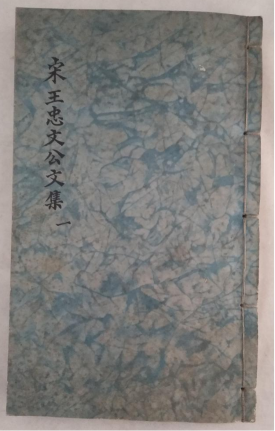 宋王忠文公文集 一